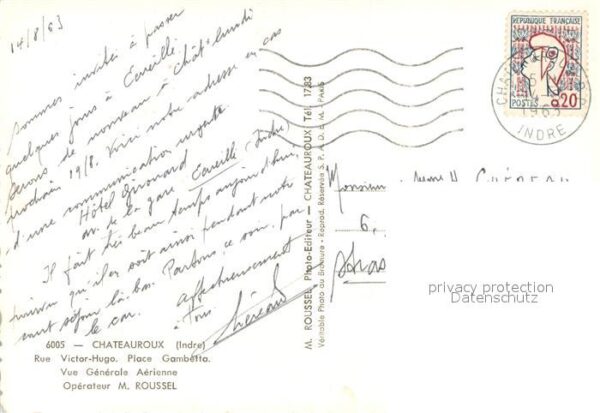 14/8/63
Sommes invités à passer
quelques jours à Ecueillé.
Serons de nouveau à Chât. lundi
prochain 19/8. Voici notre adresse en cas
d'une communication urgente
Hôtel
av. de la gare Ecueillé (Indre)
Il fait très beau temps aujourd'hui,
pourvu qu'il en soit ainsi pendant notre
court séjour là-bas. Partons, ce soir, par
le car. Affectueusement
à Tous
6005 — CHATEAUROUX (Indre)
Rue Victor-Hugo. Place Gambetta.
Vue Générale Aérienne
Opérateur M. ROUSSEL
M. ROUSSEL Photo-Editeur — CHATEAUROUX Tél. 1783
Véritable Photo au Bromure - Reprod. Réservée S.P.A.D.E.M.-PARIS
REPUBLIQUE FRANÇAISE
POSTES 0,20
1963
INDRE
Monsieur
6,
privacy protection
Datenschutz